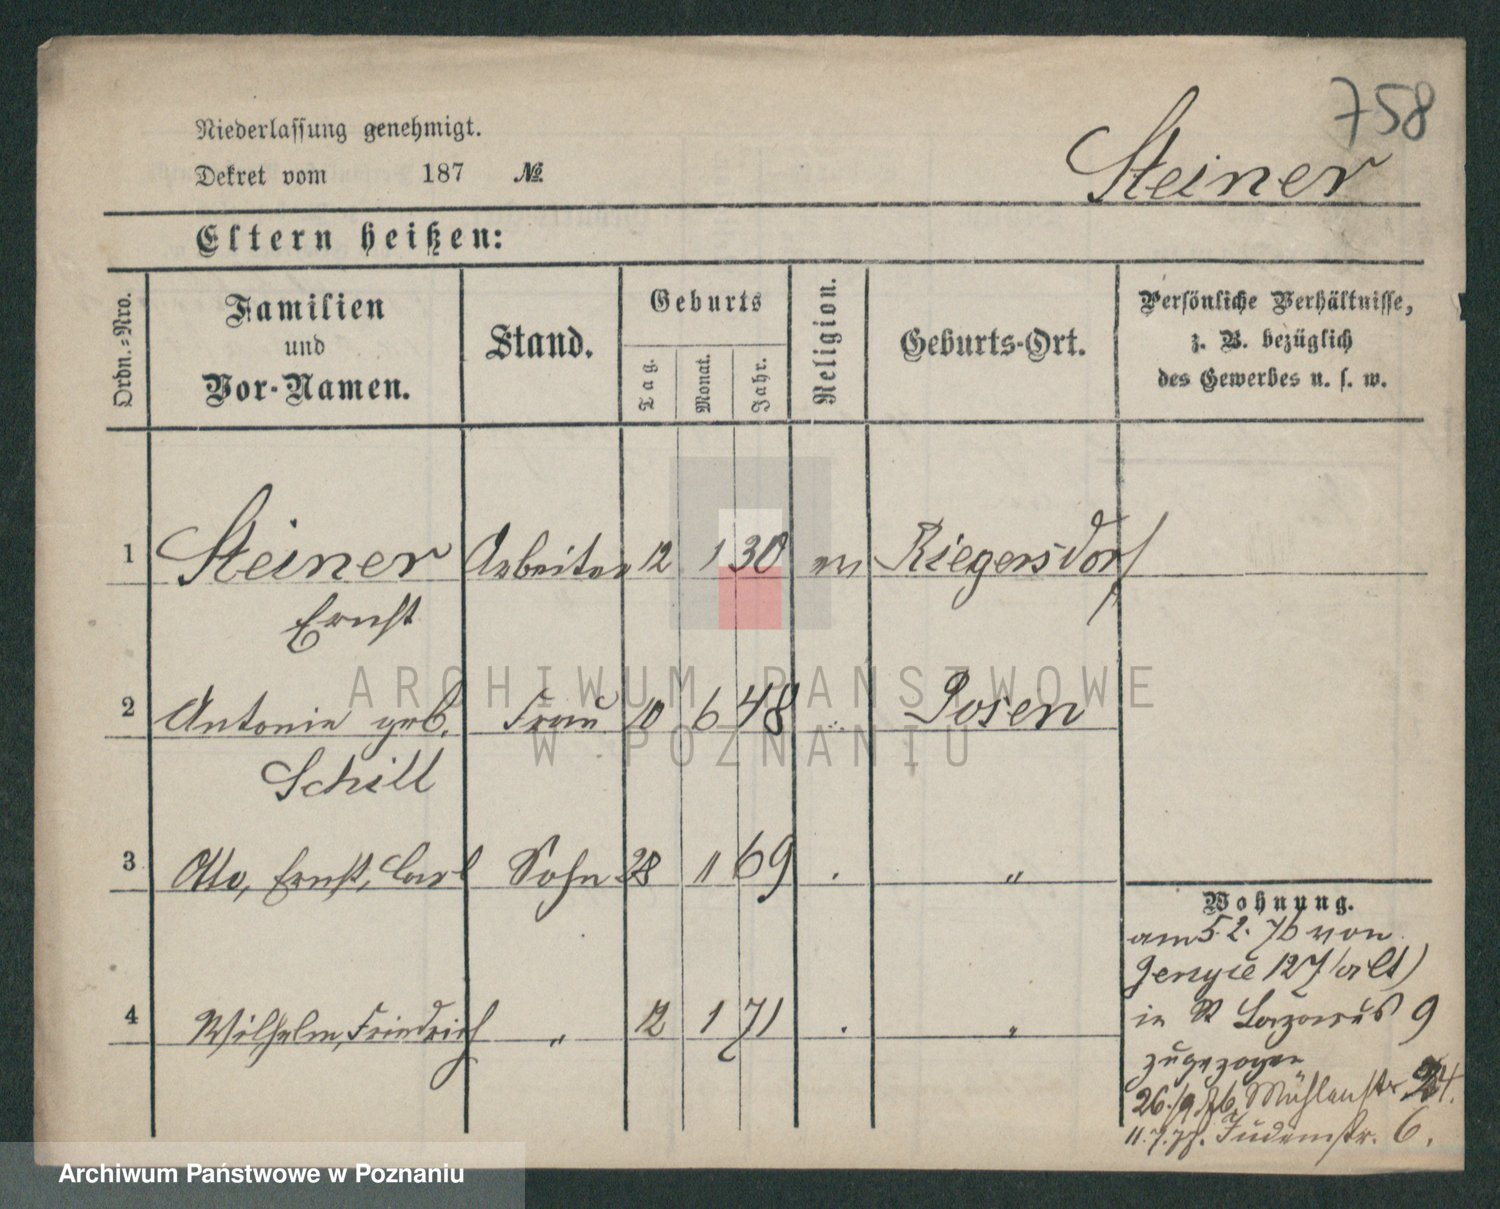 758
Niederlassung genehmigt.
Dekret vom 187 №
Steiner
Eltern heißen:
Ordn.-Nro.
Familien und Vor-Namen.
Stand.
Geburts
Tag. Monat. Jahr.
Religion.
Geburts-Ort.
Persönliche Verhältnisse,
z. B. bezüglich
des Gewerbes u. s. w.
1 Steiner Arbeiter 12 1 30 ev Riegersdorf
Ernst
2 Antonie geb. Frau 10 6 48 " Posen
Schill
3 Otto, Ernst, Carl Sohn 28 11 69 . "
4 Wilhelm, Friedrich " 12 1 71 . "
Wohnung.
am 5. 2. 76 von
127 (alt)
in St Lazarus 9
zugezogen
26./9. 76. Mühlenstr 24.
11.7.77. Judenstr. 6.
ARCHIWUM PAŃSTWOWE
W POZNANIU
Archiwum Państwowe w Poznaniu